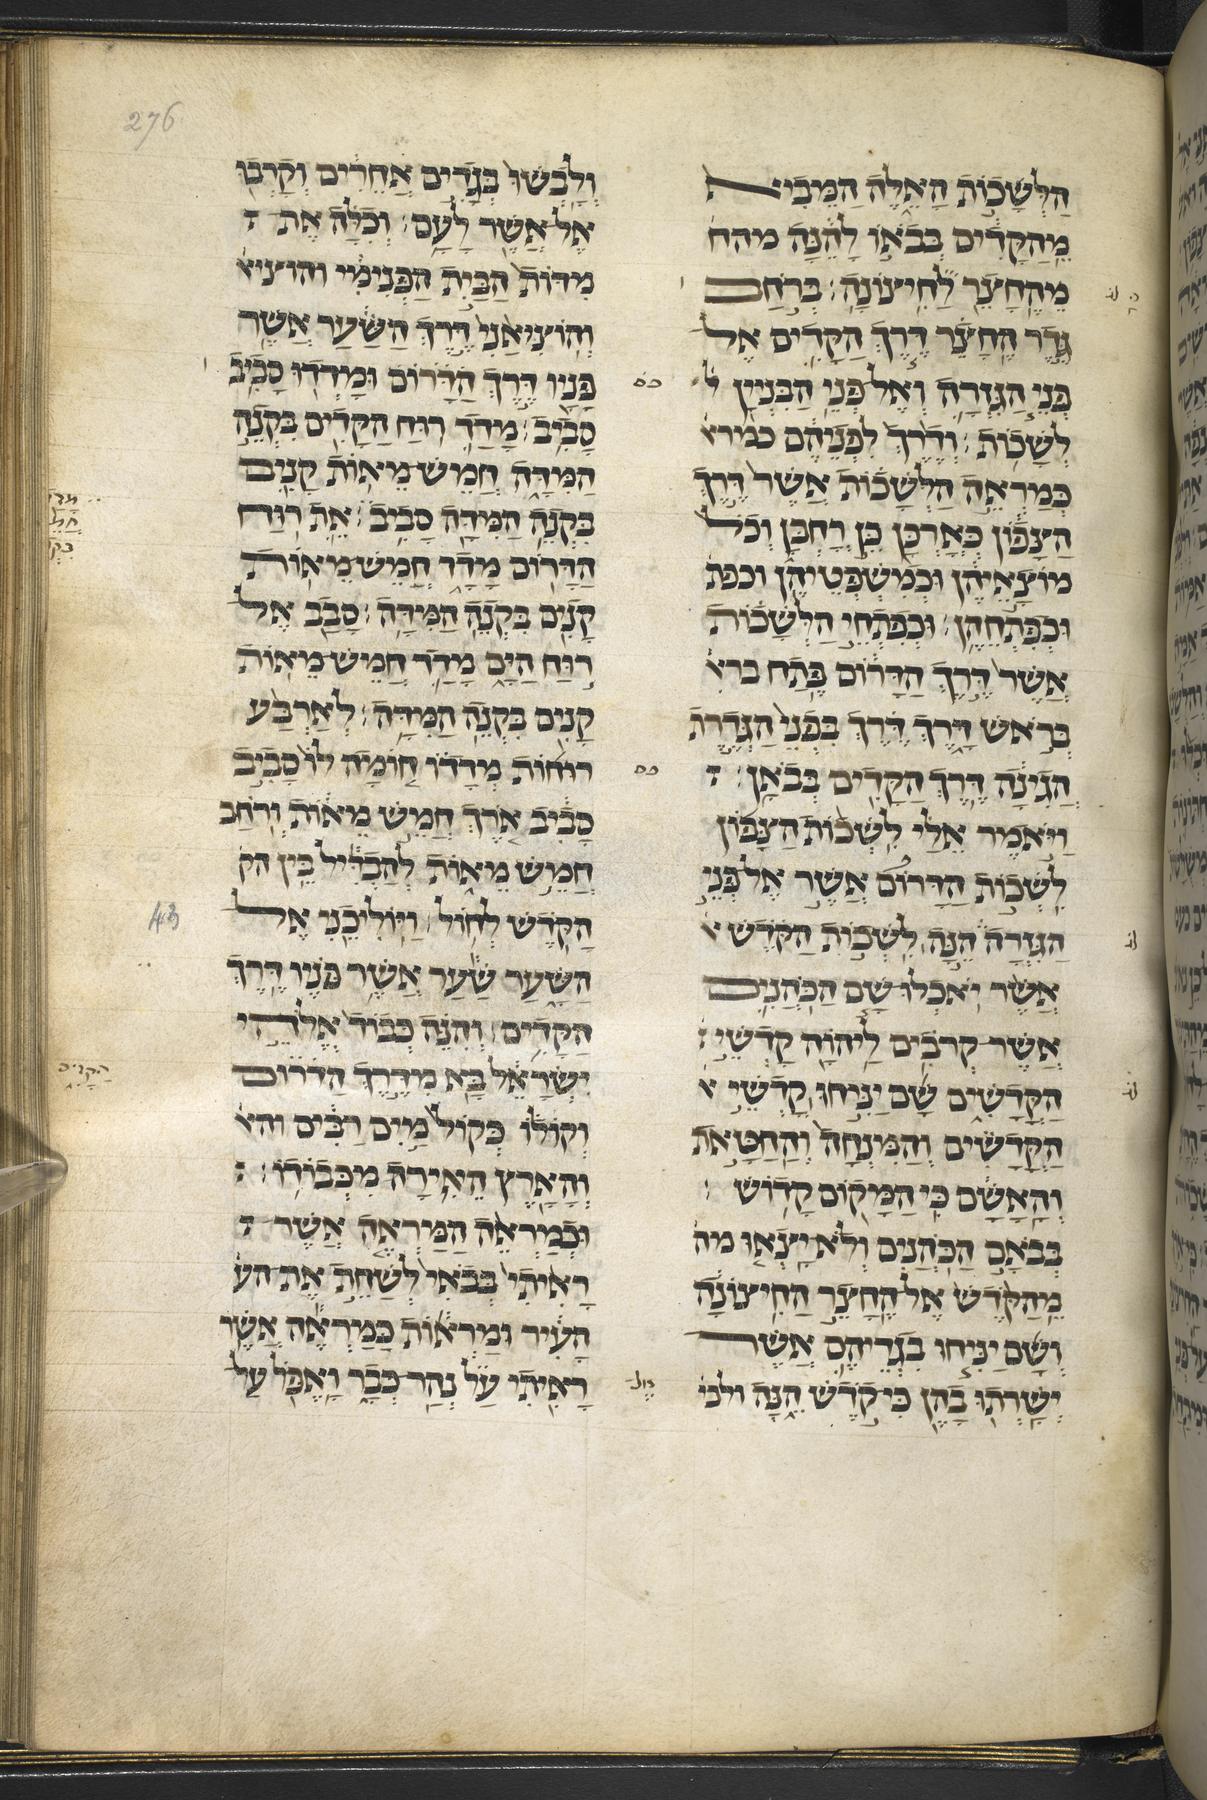 276
הַלְּשָׁכ֣וֹת הָאֵ֑לֶּה הַמֵּבִיא
מֵֽהַקָּדִ֔ים בְּבֹא֣וֹ לָהֵ֔נָּה מהח
מֵהֶחָצֵ֖ר לַחִיצוֹנָֽה׃ בְּרֹ֣חַב
גֶּ֣דֶר הֶחָצֵ֗ר דֶּ֧רֶךְ הַקָּדִ֛ים אֶל
פְּנֵ֧י הַגִּזְרָ֛ה וְאֶל־פְּנֵ֥י הַבִּנְיָ֖ן ל
לְשָׁכֽוֹת׃ וְדֶ֙רֶךְ֙ לִפְנֵיהֶ֔ם כמרא
כְּמַרְאֵ֣ה הַלְּשָׁכ֗וֹת אֲשֶׁר֙ דֶּ֣רֶךְ
הַצָּפ֔וֹן כְּאָרְכָּ֖ן כֵּ֣ן רָחְבָּ֑ן וְכֹל֙
מוֹצָ֣אֵיהֶ֔ן וּכְמִשְׁפְּטֵיהֶ֖ן וכפת
וּכְפִתְחֵיהֶֽן׃ וּכְפִתְחֵ֣י הַלְּשָׁכ֗וֹת
אֲשֶׁר֙ דֶּ֣רֶךְ הַדָּר֔וֹם פֶּ֖תַח ברא
בְּרֹ֣אשׁ דָּ֑רֶךְ דֶּ֗רֶךְ בִּפְנֵי֙ הַגְּדֶ֣רֶת
הֲגִינָ֔ה דֶּ֥רֶךְ הַקָּדִ֖ים בְּבֹאָֽן׃
וַיֹּ֣אמֶר אֵלַ֗י לִֽשְׁכ֨וֹת הַצָּפ֜וֹן
לִֽשְׁכ֣וֹת הַדָּרוֹם֮ אֲשֶׁ֣ר אֶל־פְּנֵ֣י
הַגִּזְרָה֒ הֵ֣נָּה ׀ לִֽשְׁכ֣וֹת הַקֹּ֗דֶשׁ א
אֲשֶׁ֨ר יֹאכְלוּ־שָׁ֧ם הַכֹּהֲנִ֛ים
אֲשֶׁר־קְרֹבִ֥ים לַיהוָ֖ה קָדְשֵׁ֣י
הַקֳּדָשִׁ֑ים שָׁ֞ם יַנִּ֣יחוּ ׀ קָדְשֵׁ֣י א
הַקֳּדָשִׁ֗ים וְהַמִּנְחָה֙ וְהַחַטָּ֣את
וְהָאָשָׁ֔ם כִּ֥י הַמָּק֖וֹם קָדֽוֹשׁ׃
בְּבֹאָ֣ם הַכֹּהֲנִ֗ים וְלֹֽא־יֵצְא֤וּ מה
מֵהַקֹּ֙דֶשׁ֙ אֶל־הֶחָצֵ֣ר הַחִיצוֹנָ֔ה
וְשָׁ֞ם יַנִּ֧יחוּ בִגְדֵיהֶ֛ם אֲשֶׁר
יְשָׁרְת֥וּ בָהֶ֖ן כִּי־קֹ֣דֶשׁ הֵ֑נָּה ולב
וְלָֽבְשׁוּ֙ בְּגָדִ֣ים אֲחֵרִ֔ים וְקָרְב֖וּ
אֶל־אֲשֶׁ֥ר לָעָֽם׃ וְכִלָּ֗ה אֶת ה
מִדּוֹת֙ הַבַּ֣יִת הַפְּנִימִ֔י והוציא
וְהוֹצִיאַ֙נִי֙ דֶּ֣רֶךְ הַשַּׁ֔עַר אֲשֶׁ֥ר
פָּנָ֖יו דֶּ֣רֶךְ הַדָּר֑וֹם וּמָדְד֖וּ סָבִ֥יב
סָבִֽיב׃ מָדַ֛ד ר֥וּחַ הַקָּדִ֖ים בִּקְנֵ֣ה
הַמִּדָּ֑ה חֲמֵשׁ־מֵא֥וֹת קָנִ֛ים
בִּקְנֵ֥ה הַמִּדָּ֖ה סָבִֽיב׃ אֵ֖ת ר֣וּחַ
הַדָּר֑וֹם מָדָ֕ד חֲמֵשׁ־מֵא֥וֹת
קָנִ֖ים בִּקְנֵ֥ה הַמִּדָּֽה׃ סָבַ֖ב אֶל
ר֣וּחַ הַיָּ֑ם מָדַ֕ד חֲמֵשׁ־מֵא֥וֹת
קָנִ֖ים בִּקְנֵ֥ה הַמִּדָּֽה׃ לְאַרְבַּ֨ע
רוּח֜וֹת מְדָד֗וֹ ח֤וֹמָה לוֹ֙ סָבִ֣יב
סָבִ֔יב אֹ֚רֶךְ חֲמֵ֣שׁ מֵא֔וֹת וְרֹ֖חַב
חֲמֵ֣שׁ מֵא֑וֹת לְהַבְדִּ֕יל בֵּ֥ין הק
הַקֹּ֖דֶשׁ לְחֹֽל׃ וַיּוֹלִכֵ֖נִי אֶל
43
הַשָּׁ֑עַר שַׁ֕עַר אֲשֶׁ֥ר פֹּנֶ֖יו דֶּ֥רֶךְ
הַקָּדִֽים׃ וְהִנֵּ֗ה כְּבוֹד֙ אֱלֹהֵ֣י
יִשְׂרָאֵ֔ל בָּ֖א מִדֶּ֣רֶךְ הַדָּר֑וֹם
הַקָּדִ֑ים
וְקוֹל֗וֹ כְּקוֹל֙ מַ֣יִם רַבִּ֔ים והא
וְהָאָ֖רֶץ הֵאִ֥ירָה מִכְּבֹדֽוֹ׃
וּכְמַרְאֵ֨ה הַמַּרְאֶ֜ה אֲשֶׁר ר
רָאִ֗יתִי בְּבֹאִי֙ לְשַׁחֵ֣ת אֶת־הע
הָעִ֔יר וּמַרְא֕וֹת כַּמַּרְאֶ֕ה אֲשֶׁ֥ר
רָאִ֖יתִי עַ֣ל נְהַר־כְּבָ֑ר וָאֶפֹּ֖ל עַל